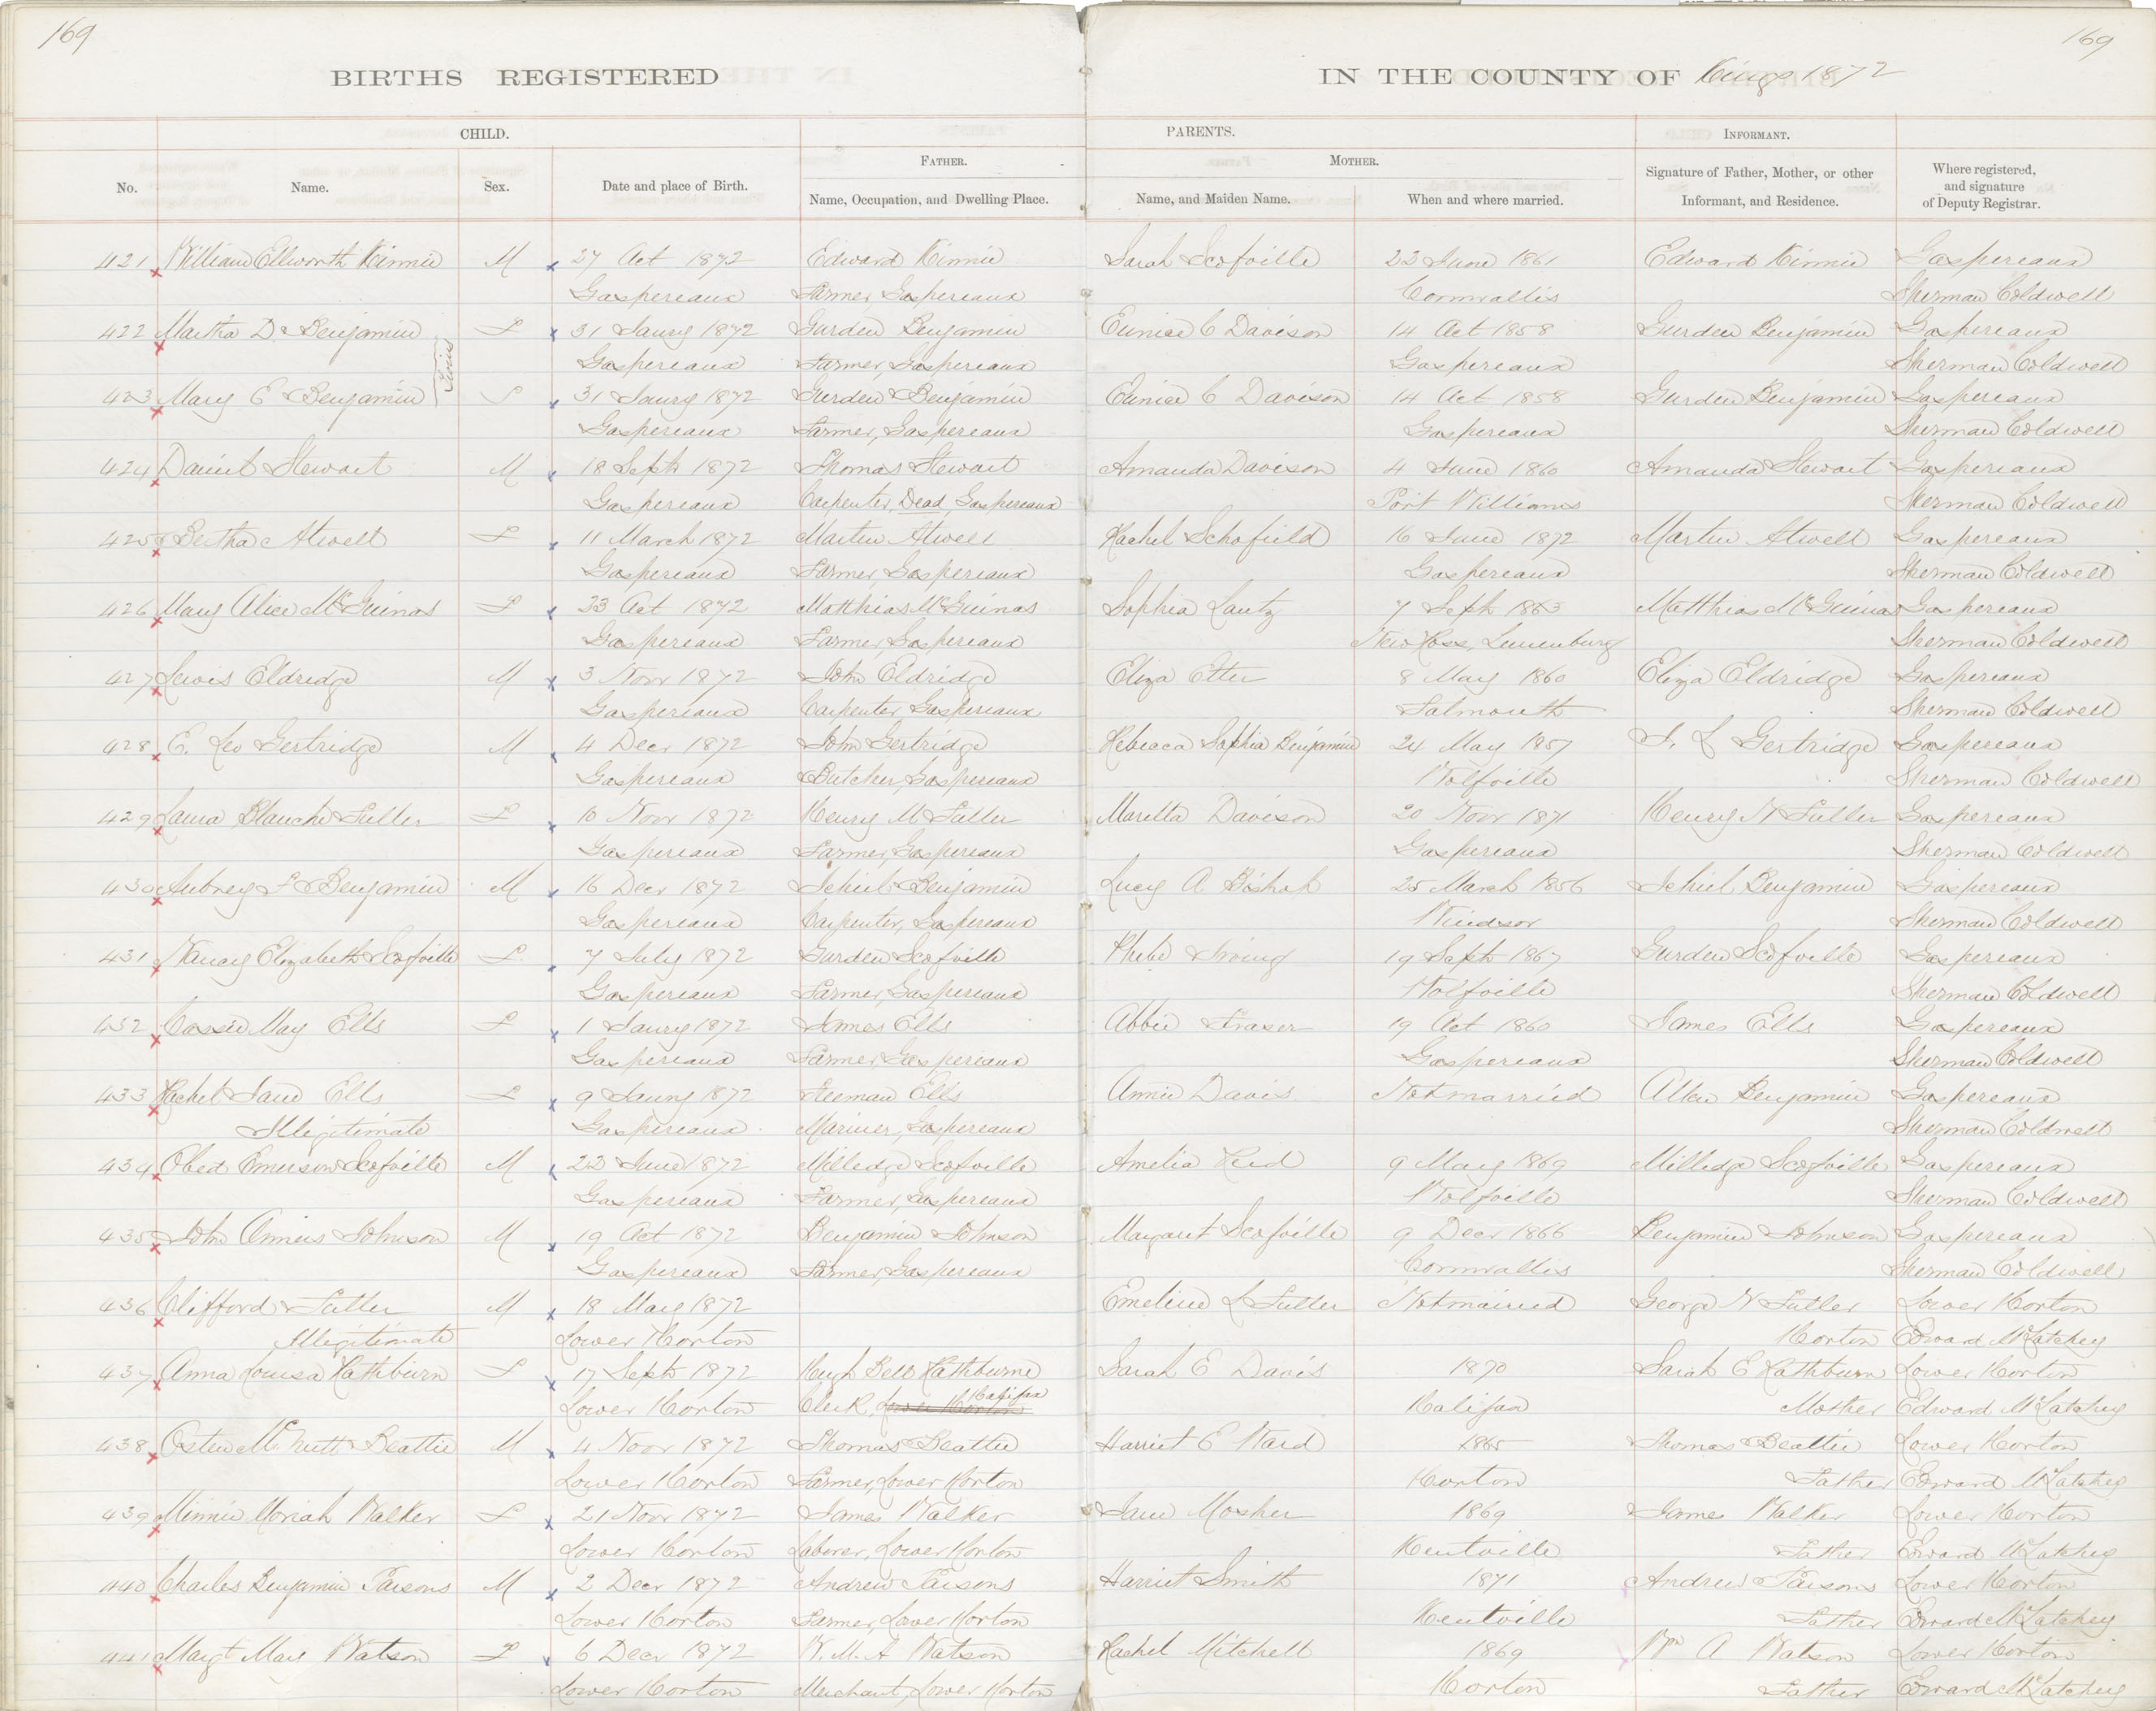 169
169
BIRTHS REGISTERED
IN THE COUNTY OF Kings 1872
CHILD.
PARENTS.
INFORMANT.
FATHER.
MOTHER.
No.
Name.
Sex.
Date and place of Birth.
Name, Occupation, and Dwelling Place.
Name, and Maiden Name.
When and where married.
Signature of Father, Mother, or other
Informant, and Residence.
Where registered,
and signature
of Deputy Registrar.
421 William Ellworth Kinnie M 27 Oct 1872 Edward Kinnie Sarah Scofville 22 June 1861 Edward Kinnie Gaspereaux
Gaspereaux Farmer, Gaspereaux Cornwallis Sherman Coldwell
422 Martha D. Benjamin F 31 Jaury 1872 Gurden Benjamin Eunice C Davison 14 Oct 1858 Gurden Benjamin Gaspereaux
Twins
Gaspereaux Farmer, Gaspereaux Gaspereaux Sherman Coldwell
423 Mary E Benjamin F 31 Jaury 1872 Gurden Benjamin Eunice C Davison 14 Oct 1858 Gurden Benjamin Gaspereaux
Gaspereaux Farmer, Gaspereaux Gaspereaux Sherman Coldwell
424 Daniel Stewart M 18 Sept 1872 Thomas Stewart Amanda Davison 4 June 1860 Amanda Stewart Gaspereaux
Gaspereaux Carpenter, Dead, Gaspereaux Port Williams Sherman Coldwell
425 Bertha Atwell F 11 March 1872 Martin Atwell Rachel Schofield 16 June 1872 Martin Atwell Gaspereaux
Gaspereaux Farmer, Gaspereaux Gaspereaux Sherman Coldwell
426 Mary Alice McGuinas F 23 Oct 1872 Matthias McGuinas Sophia Lantz 7 Sept 1863 Matthias McGuinas Gaspereaux
Gaspereaux Farmer, Gaspereaux New Ross, Lunenburg Sherman Coldwell
427 Lewis Eldridge M 3 Novr 1872 John Eldridge Eliza Etter 8 May 1860 Eliza Eldridge Gaspereaux
Gaspereaux Carpenter, Gaspereaux Falmouth Sherman Coldwell
428 E. Leo Gertridge M 4 Decr 1872 John Gertridge Rebecca Sophia Benjamin 24 May 1857 L Gertridge Gaspereaux
Gaspereaux Butcher, Gaspereaux Wolfville Sherman Coldwell
429 Laura Blanche Fuller F 10 Novr 1872 Henry M Fuller Maretta Davison 20 Novr 1871 Henry N Fuller Gaspereaux
Gaspereaux Farmer, Gaspereaux Gaspereaux Sherman Coldwell
430 Aubrey F Benjamin M 16 Decr 1872 Jehiel Benjamin Lucy A Bishop 25 March 1856 Jehiel Benjamin Gaspereaux
Gaspereaux Carpenter, Gaspereaux Windsor Sherman Coldwell
431 Nancy Elizabeth Scofville F 7 July 1872 Gurden Scofville Phebe Irving 19 Sept 1867 Gurden Scofville Gaspereaux
Gaspereaux Farmer, Gaspereaux Wolfville Sherman Coldwell
432 Cassie May Ells F 1 Jaury 1872 James Ells Abbie Fraser 19 Oct 1860 James Ells Gaspereaux
Gaspereaux Farmer, Gaspereaux Gaspereaux Sherman Coldwell
433 Rachel Jane Ells F 9 Jaury 1872 Freeman Ells Annie Davis Not married Allen Benjamin Gaspereaux
Illegitimate Gaspereaux Mariner, Gaspereaux Sherman Coldwell
434 Obed Emerson Scofville M 22 June 1872 Milledge Scofville Amelia Reid 9 May 1869 Milledge Scofville Gaspereaux
Gaspereaux Farmer, Gaspereaux Wolfville Sherman Coldwell
435 John Annies Johnson M 19 Oct 1872 Benjamin Johnson Margaret Scofville 9 Decr 1866 Benjamin Johnson Gaspereaux
Gaspereaux Farmer, Gaspereaux Cornwallis Sherman Coldwell
436 Clifford Fuller M 18 May 1872 Emeline L Fuller Not married George N Fuller Lower Horton
Illegitimate Lower Horton Horton Edward McLatchey
437 Anna Louisa Rathburn F 17 Sept 1872 Hugh Bell Rathburne Sarah E Davis 1870 Sarah E Rathburn Lower Horton
Lower Horton Clerk, Lower Horton Halifax Halifax Mother Edward McLatchey
438 Osten McNutt Beattie M 4 Novr 1872 Thomas Beattie Harriet E Ward 1865 Thomas Beattie Lower Horton
Lower Horton Farmer, Lower Horton Horton Father Edward McLatchey
439 Minnie Moriah Walker F 21 Novr 1872 James Walker Jane Mosher 1869 James Walker Lower Horton
Lower Horton Laborer, Lower Horton Kentville Father Edward McLatchey
440 Charles Benjamin Parsons M 2 Decr 1872 Andrew Parsons Harriet Smith 1871 Andrew Parsons Lower Horton
Lower Horton Farmer, Lower Horton Kentville Father Edward McLatchey
441 Margt May Watson F 6 Decr 1872 W. M. A Watson Rachel Mitchell 1869 Wm A Watson Lower Horton
Lower Horton Merchant, Lower Horton Horton Father Edward McLatchey